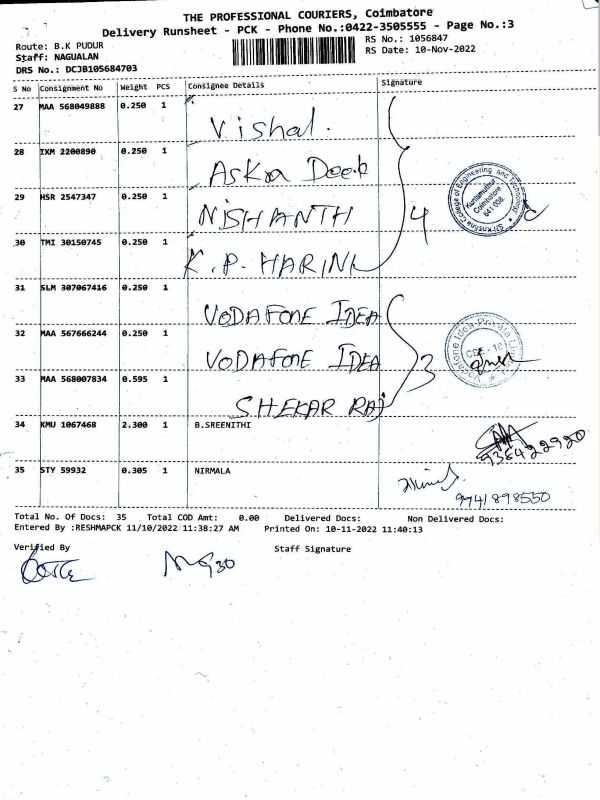 THE PROFESSIONAL COURIERS, Coimbatore
Delivery Runsheet - PCK - Phone No.:0422-3505555 - Page No.:3
Route: B.K PUDUR
RS No.: 1056847
Staff: NAGUALAN
RS Date: 10-Nov-2022
DRS No.: DCJB105684703
S No Consignment No Weight PCS Consignee Details Signature
27 MAA 568049888 0.250 1 Vishal.
28 IXM 2200890 0.250 1 Askar Deeb
29 HSR 2547347 0.250 1 NISHANTH 4
30 TMI 30150745 0.250 1 K.P. HARINI
Sri Krishna College of Engineering and Technology
Kuniamuthur
Coimbatore
641 008
31 SLM 307067416 0.250 1 VODAFONE IDEA
32 MAA 567666244 0.250 1 VODAFONE IDEA 3
33 MAA 568007834 0.595 1 SHEKAR RAJ
Vodafone Idea Private
34 KMU 1067468 2.300 1 B.SREENITHI
35 STY 59932 0.305 1 NIRMALA
9941898550
Total No. Of Docs: 35 Total COD Amt: 0.00 Delivered Docs: Non Delivered Docs:
Entered By :RESHMAPCK 11/10/2022 11:38:27 AM Printed On: 10-11-2022 11:40:13
Verified By Staff Signature